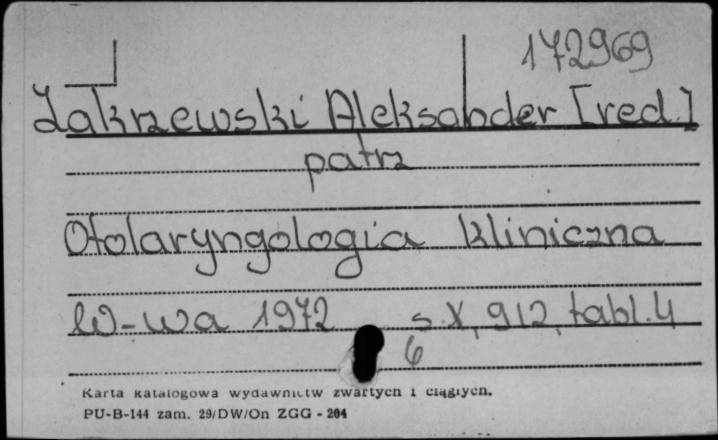 172969
Zakrzewski Aleksander [red.]
patrz
Otolaryngologia kliniczna
W-wa 1972 s. X, 912, tabl. 4
6
Karta katalogowa wydawnictw zwartych i ciągłych.
PU-B-144 zam. 29/DW/On ZGG - 204